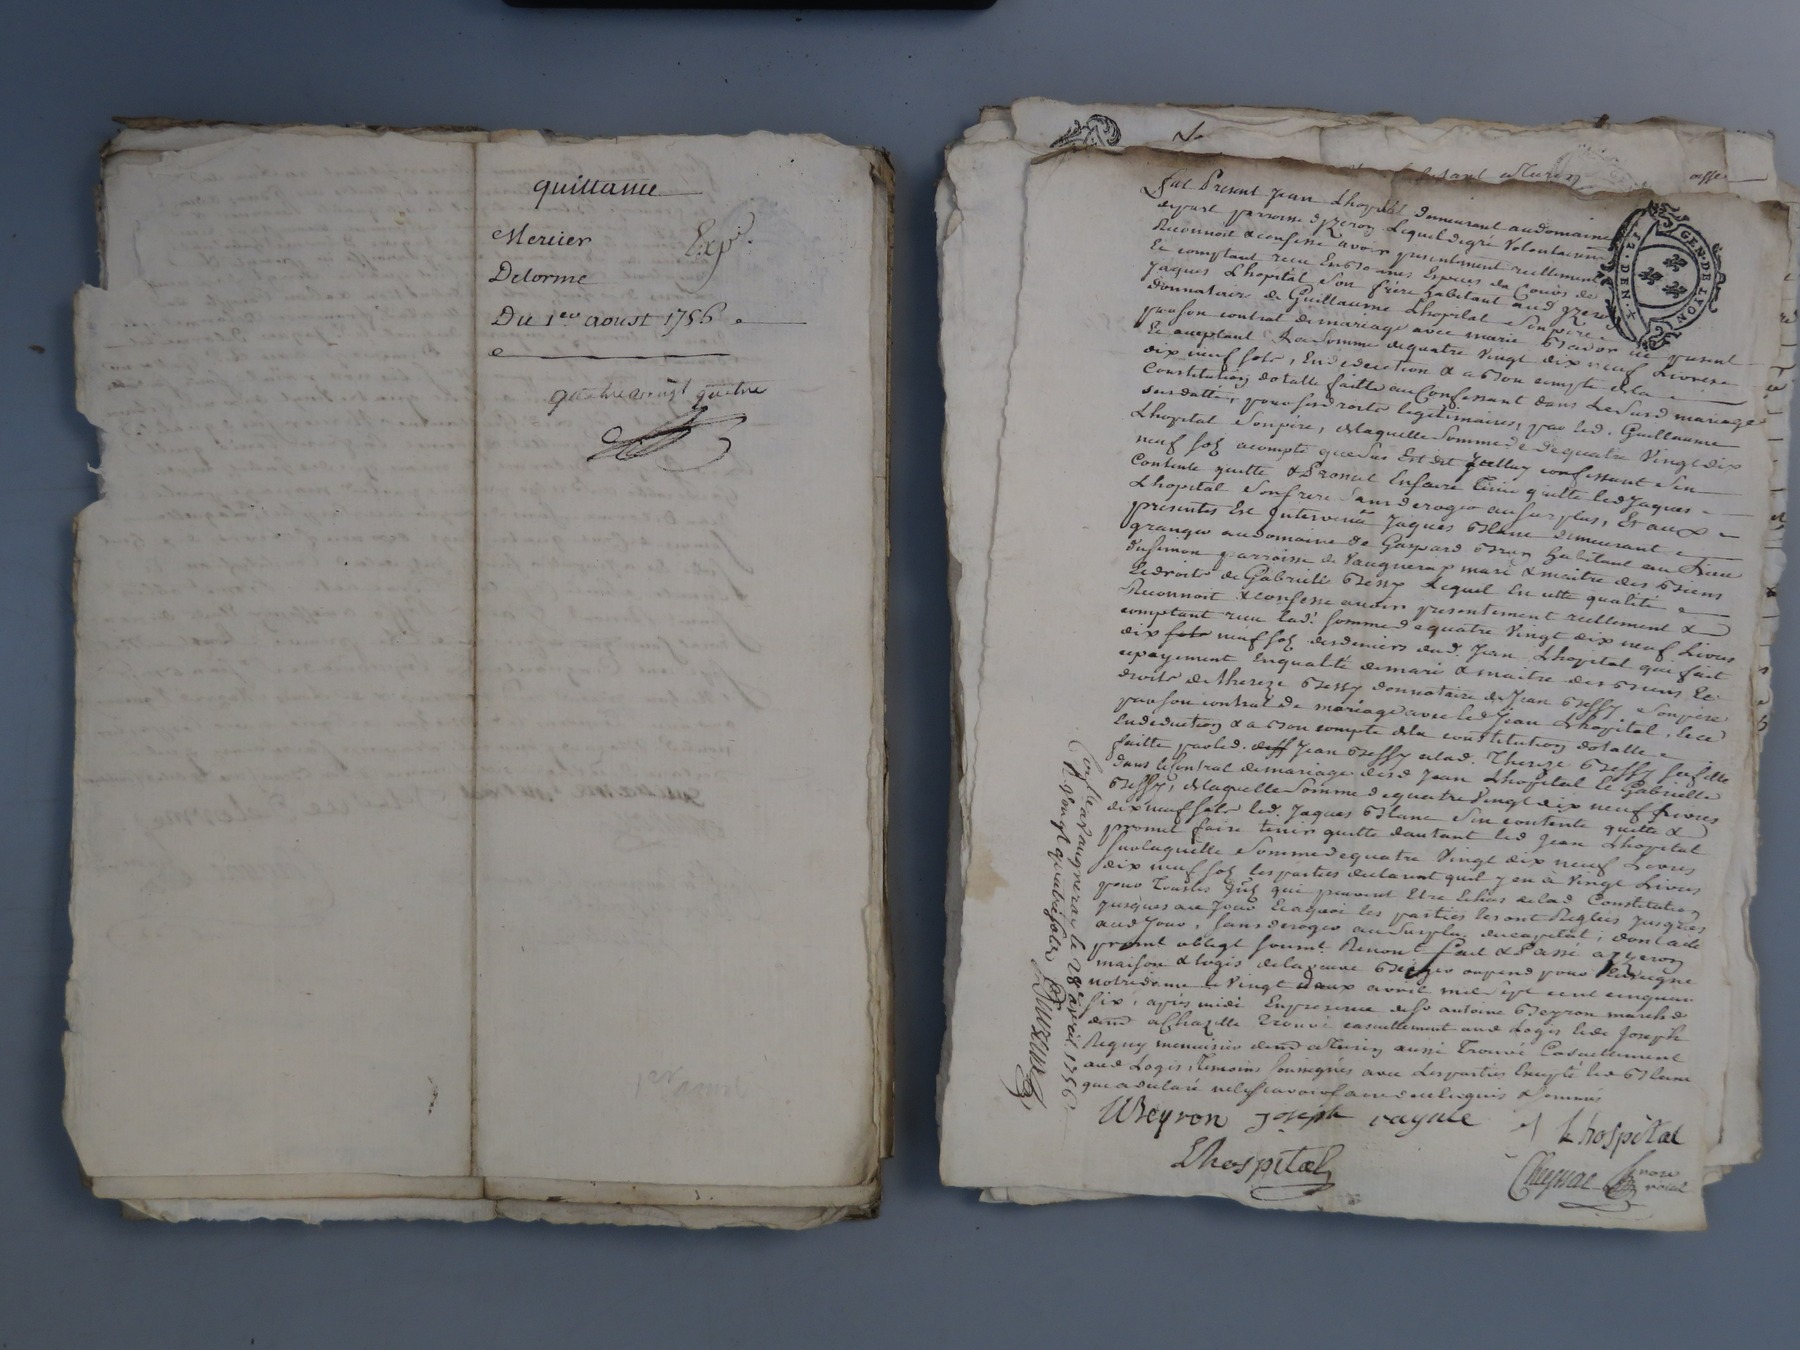 quittance
Mercier Exp.
Delorme
Du 1er aoust 1756
quatre vingt quatre
GEN. DE LYON
fut Present Jean Lhopital demeurant au domaine
depart parroisse d'yzeron Lequel de gré Volontairem
Reconnoit & confesse avoir presentement reellement
Et comptant receu En bonnes Especes de Cours de
Jaques Lhopital Son frere habitant aud yzeron
donnataire de Guillaume Lhopital Son pere
par son contrat de mariage avec marie present
Et acceptant La Somme de quatre Vingt dix neuf Livres
dix neuf sols, En deduction & a bon compte de la
Constitution dotalle faitte au Confessant dans Le Susd mariage
Sus datté, pour ses droits legitimaires, par led. Guillaume
Lhopital Son pere, de laquelle Somme de quatre Vingt dix
neuf sols acompte que dus Est dit Jcelluy confessant S'en
Contente quitte & Promet Enfaire Tenir quitte led Jaques
Lhopital Son frere Sans deroger au Surplus, Et aux
presentes Est Intervenu Jaques Blanc demeurant
granger au domaine de Gaspard Brun habitant au Lieu
parroisse de Vaugneray mari & maitre des Biens
Et droits de Gabrielle Bessy Lequel En cette qualité
Reconnoit & confesse avoir presentement reellement &
comptant receu lad. Somme de quatre Vingt dix neuf Livres
dix neuf sols des deniers dud. Jean Lhopital qui fait
cepayement En qualité de mari & maitre des Biens Et
droits de thereze Bessy donnataire de Jean Bessy Son pere
par son contrat de mariage avec led Jean Lhopital, Et ce
En deduction & a Bon compte de la constitution dotalle
faitte par led. Jean Bessy a lad. Thereze Bessy sa fille
dans le Contrat de mariage desd Jean Lhopital Et Gabrielle
Bessy, de laquelle Somme de quatre Vingt dix neuf Livres
dix neuf sols led. Jaques Blanc S'en contente quitte &
promet faire tenir quitte d'autant led Jean Lhopital
Sur laquelle Somme de quatre Vingt dix neuf Livres
dix neuf sols les parties declarent quil y en a Vingt Livres
pour Toustes qui peuvent Etre de lad Constitution
Jusques au Jour Et aquoi les parties les ont Reglées Jusques
aud Jour, Sans deroger au Surplus du capital, dont acte
promt obligt soumt Renont fait & Passé a yzeron
maison & Logis de la veuve ou pend pour Enseigne
notre dame Vingt deux avril mil Sept cent cinquante
Six, apres midi En presence de Sr antoine Beyron march d
Trouvé casuellement aud Logis Et de Joseph
menuisier aussi Trouvé Casuellement
aud Logis, Temoins Soussignés avec les parties Excepté led Blanc
que a declaré ne le Scavoir faire de ce Enquis & Sommé
Beyron joseph Lhospital
Lhospital
Cheynac nore royal
Conllé a vaugneray le 28e avril 1756
R. vingt quatre sols